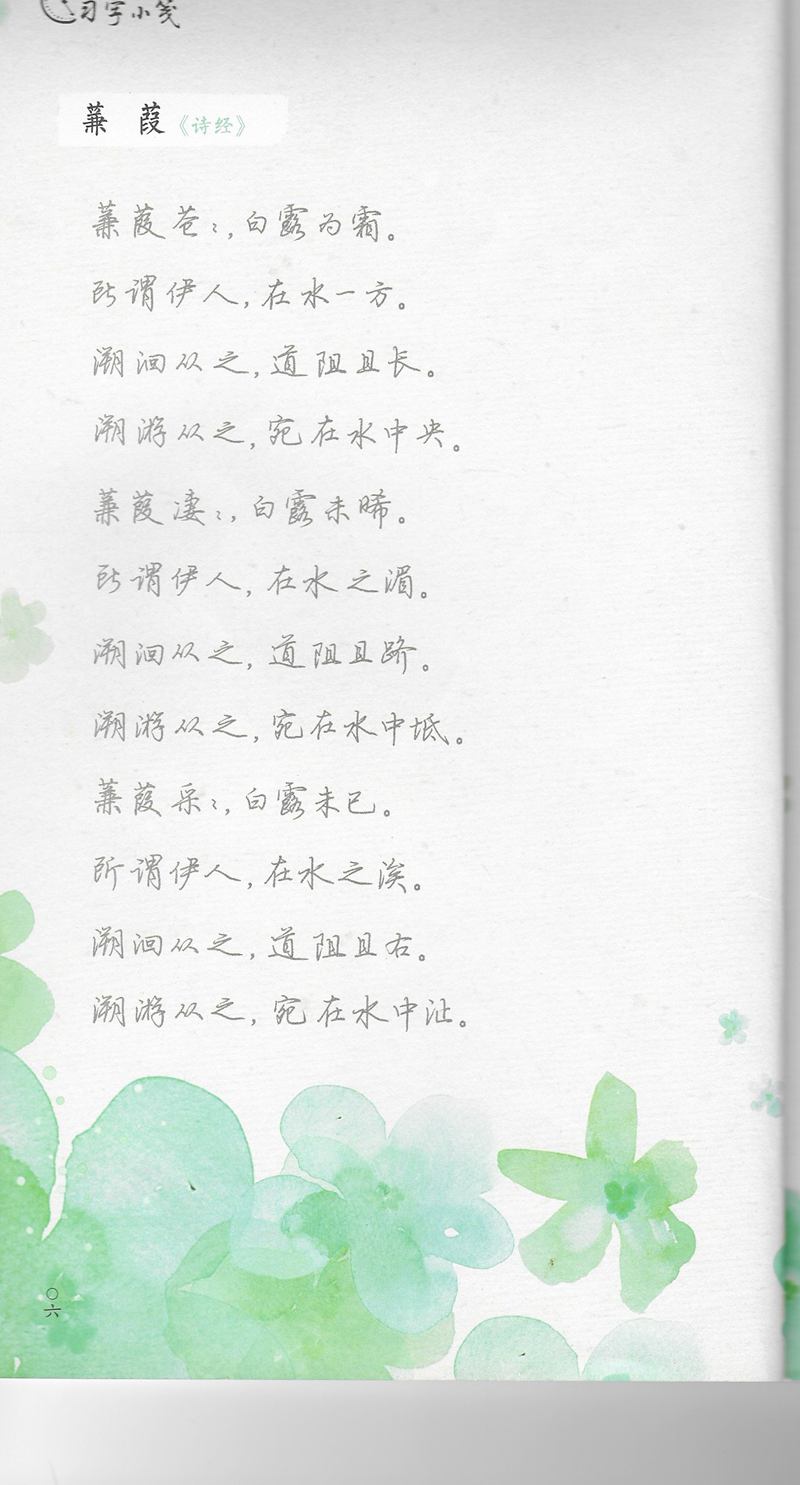 习字小笺
蒹葭《诗经》
蒹葭苍々,白露为霜。
所谓伊人,在水一方。
溯洄从之,道阻且长。
溯游从之,宛在水中央。
蒹葭凄々,白露未晞。
所谓伊人,在水之湄。
溯洄从之,道阻且跻。
溯游从之,宛在水中坻。
蒹葭采々,白露未已。
所谓伊人,在水之涘。
溯洄从之,道阻且右。
溯游从之,宛在水中沚。
〇六